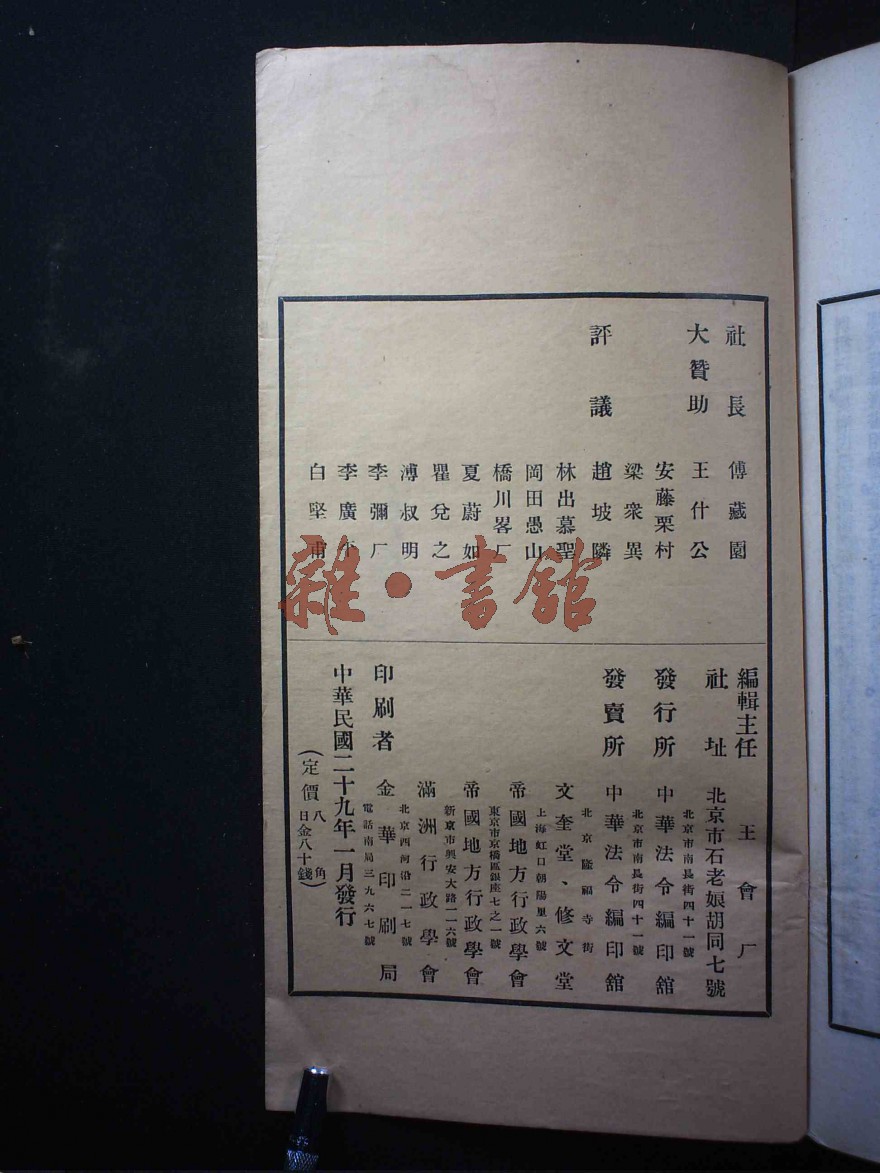 社長　傅藏園
大贊助　王什公
安藤栗村
梁衆異
評議　趙坡隣
林出慕聖
岡田愚山
橋川畧厂
夏蔚如
瞿兌之
溥叔明
李彌厂
李廣
白堅甫
編輯主任　王會厂
社址　北京市石老娘胡同七號
北京市南長街四十一號
發行所　中華法令編印舘
北京市南長街四十一號
發賣所　中華法令編印舘
北京隆福寺街
文奎堂、修文堂
上海虹口朝陽里六號
帝國地方行政學會
東京市京橋區銀座七之一號
帝國地方行政學會
新京市興安大路一一六號
滿洲行政學會
北京西河沿二一七號
印刷者　金華印刷局
電話南局三九六七號
中華民國二十九年一月發行
（定價八角 日金八十錢）
雜·書館